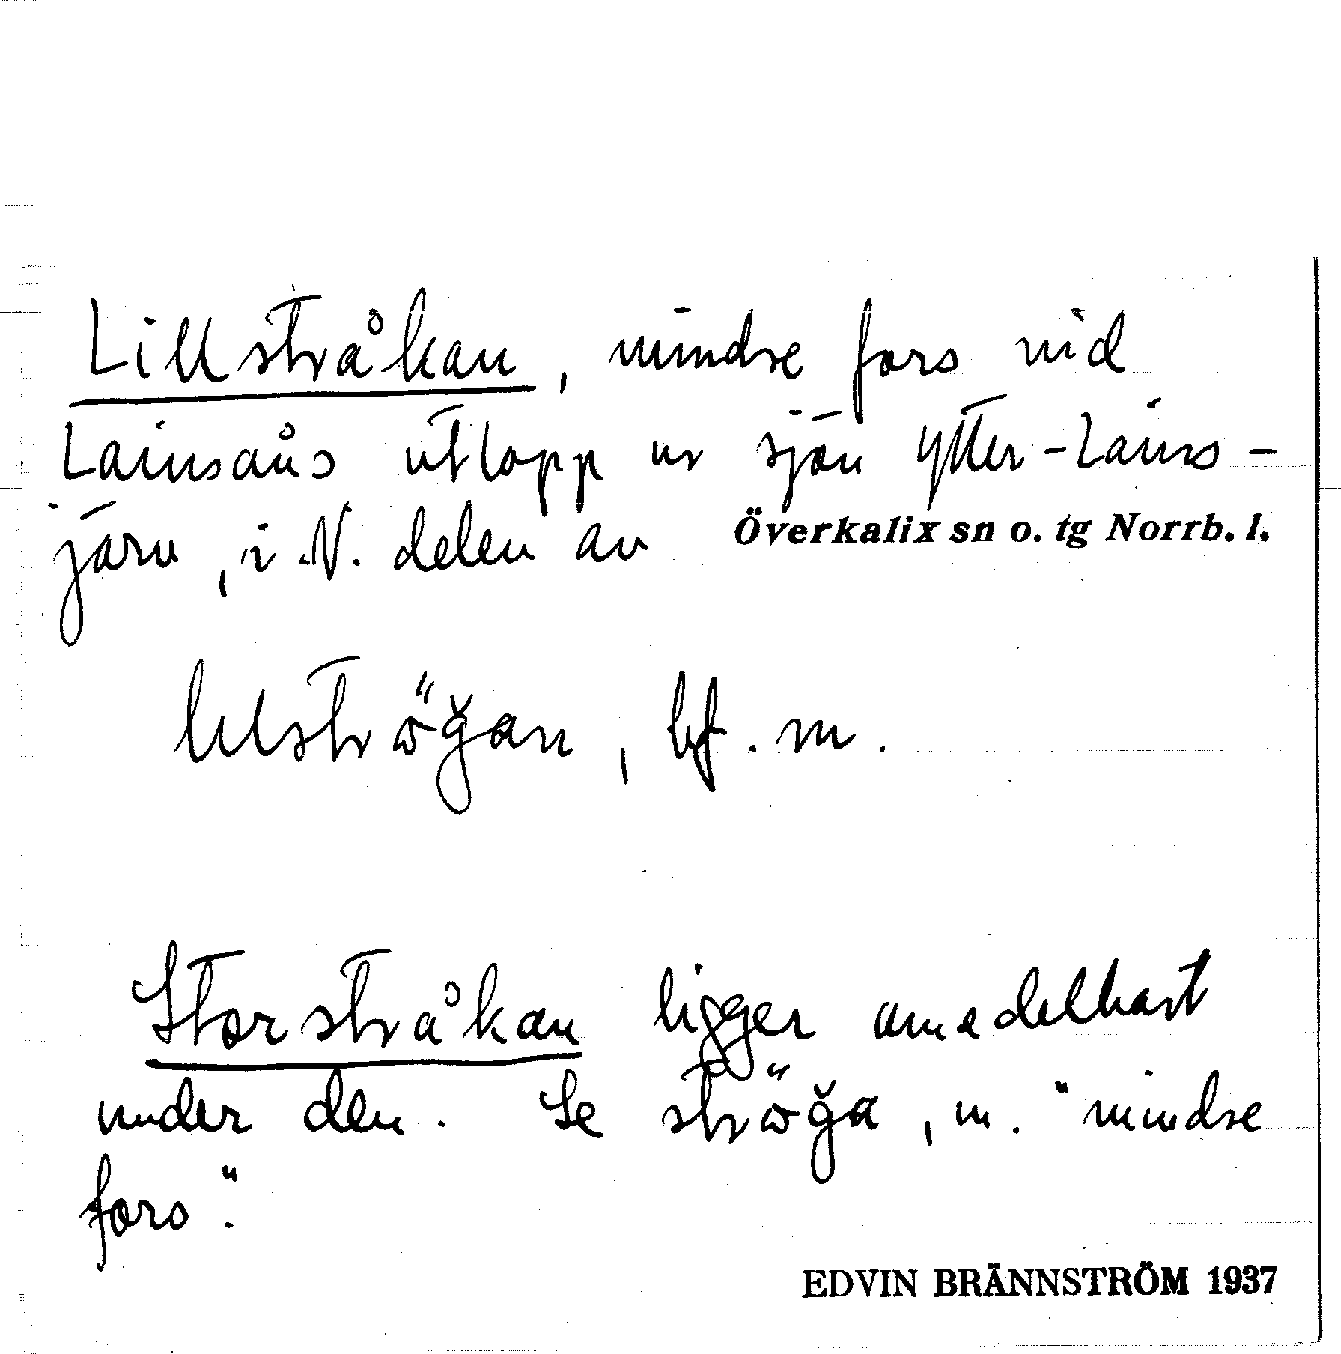 Lillstråkan, mindre fors vid
Lainsåns utlopp ur sjön Ytter-Lains-
järv, i N. delen av Överkalix sn o. tg Norrb. l.
lilströ̈ğan, bf. m.
Storstråkan ligger omedelbart
under den. Se ströğa, m. "mindre
fors".
EDVIN BRÄNNSTRÖM 1937